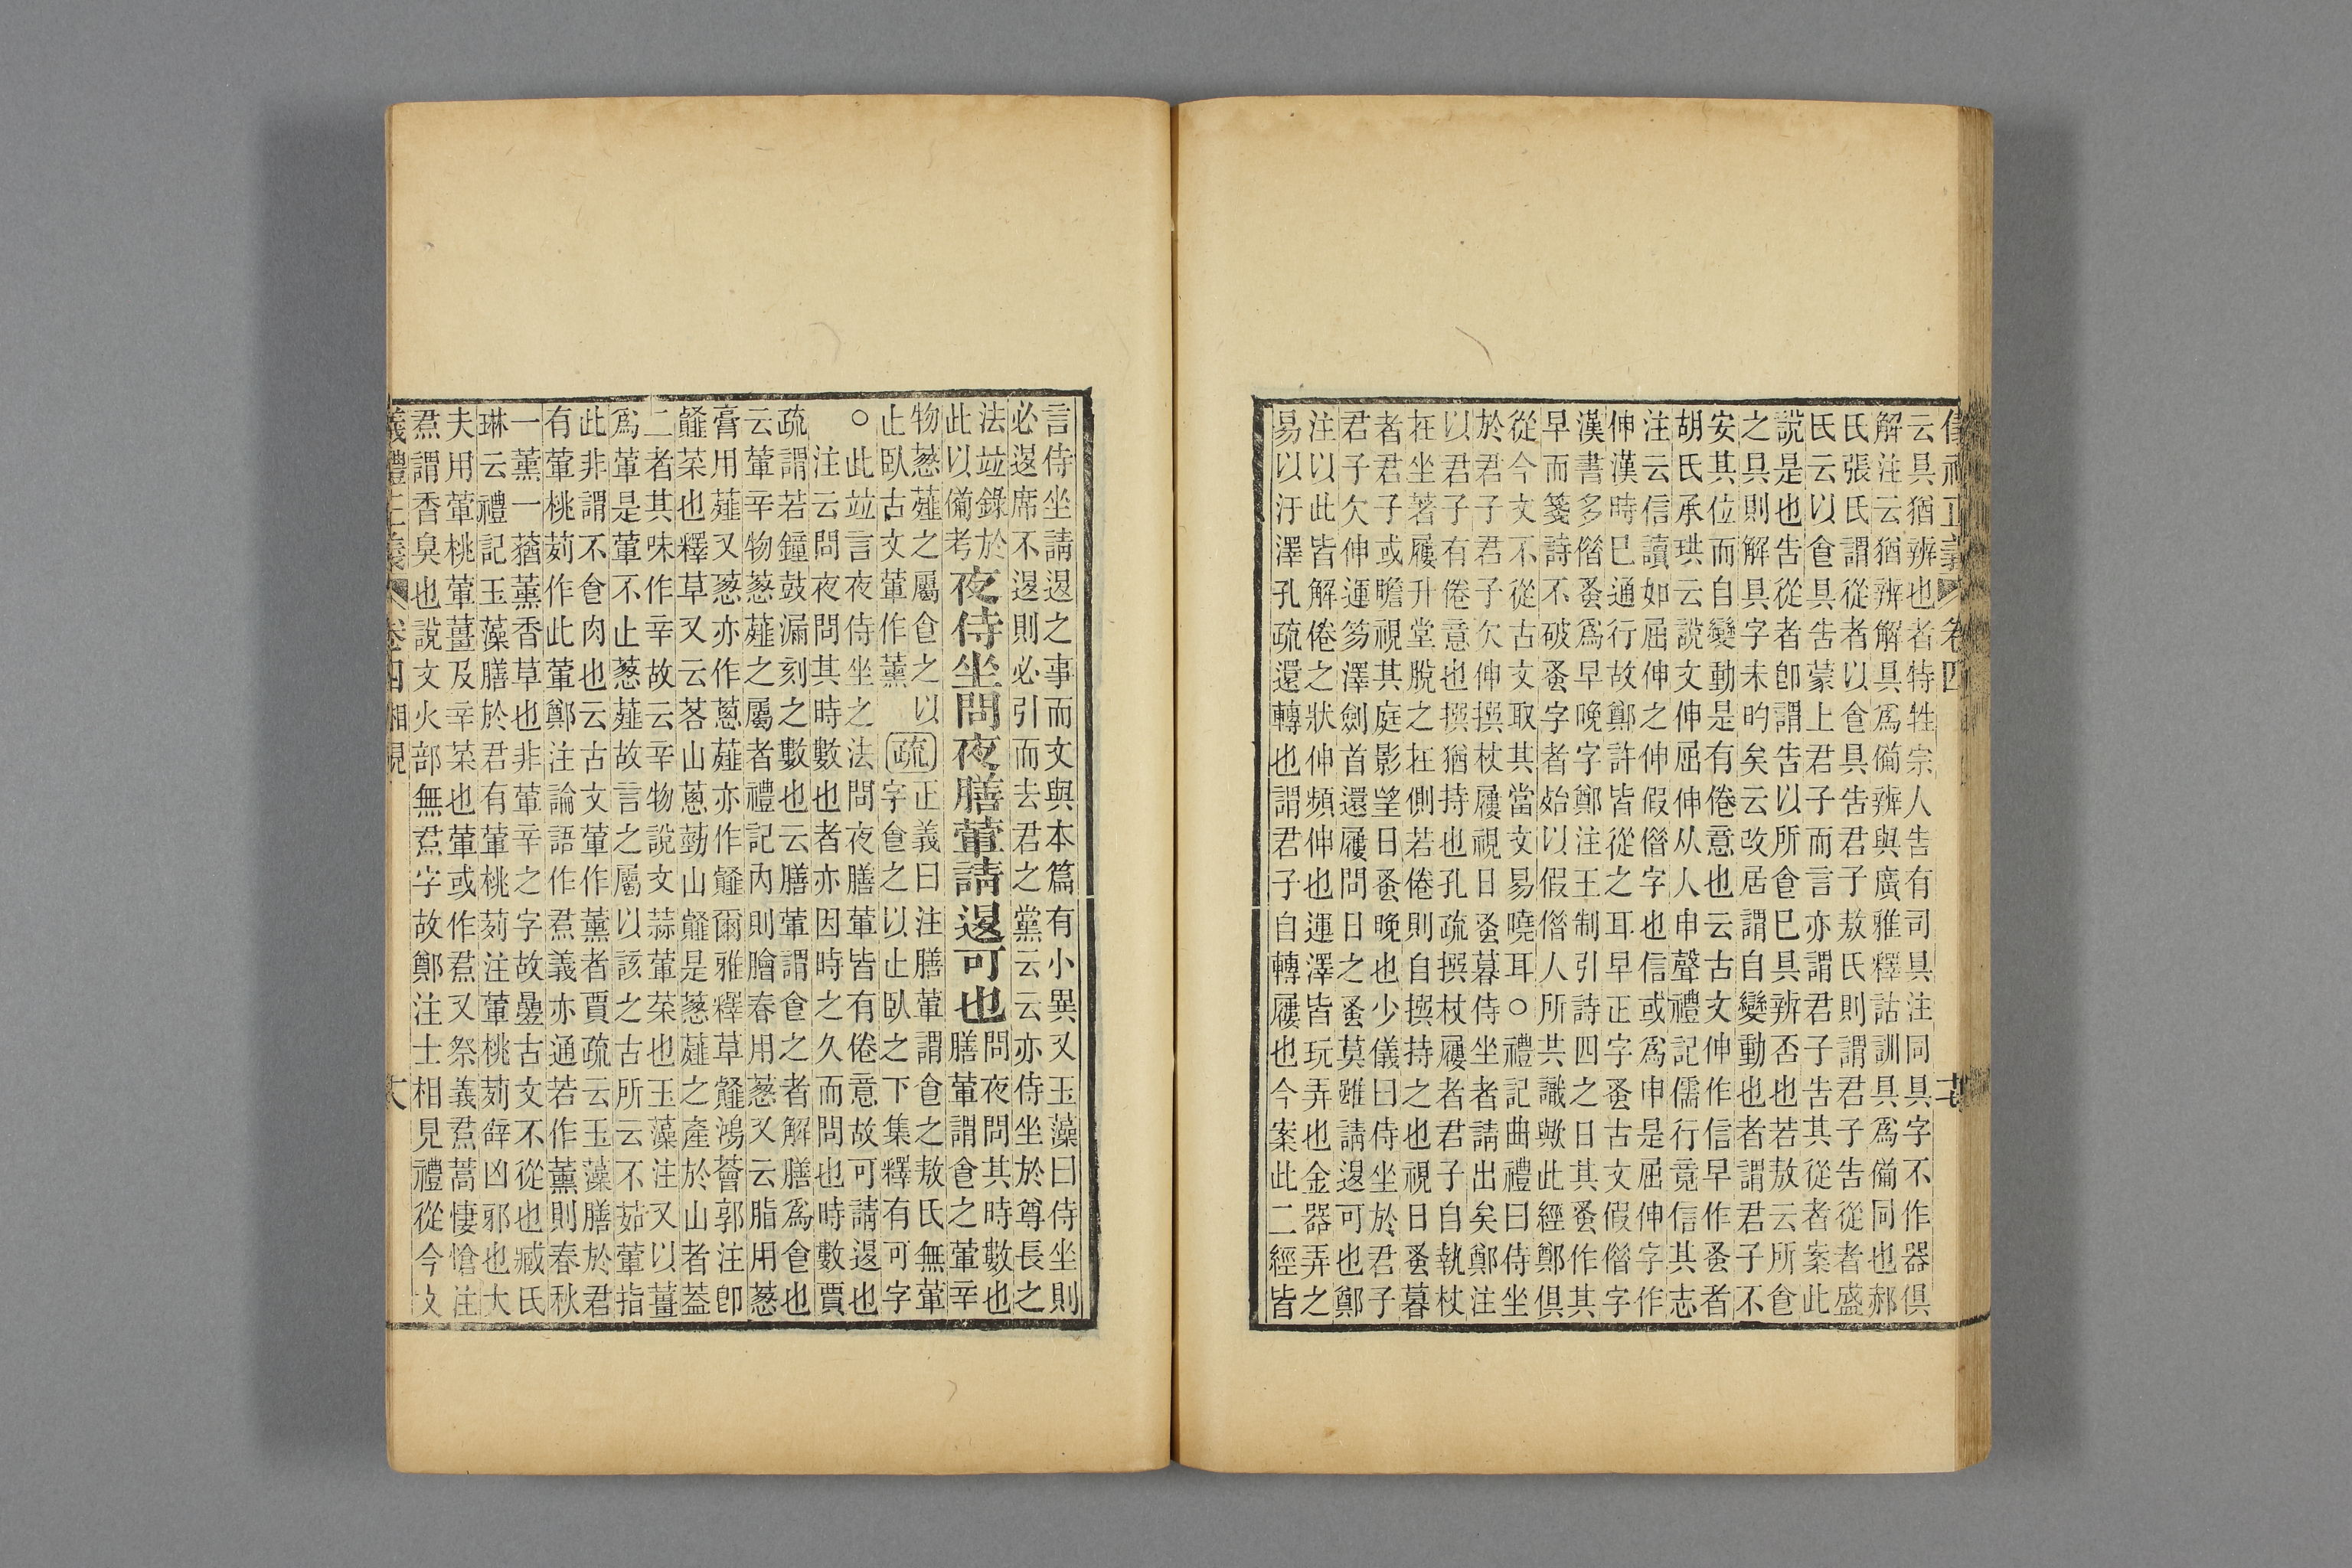 儀禮正義 卷四
云具猶辨也者特牲宗人告有司具注同具字不作器俱
解注云猶辨解具爲備辨與廣雅釋詁訓具爲備同也郝
氏張氏謂從者以食具告君子敖氏則謂君子告從者盛
氏云以食具告蒙上君子而言亦謂君子告其從者案此
說是也告從者卽謂告以所食巳具辨否也若敖云所食
之具則解具字未旳矣云改居謂自變動也者謂君子不
安其位而自變動是有倦意也云古文伸作信早作蚤者
胡氏承珙云說文伸屈伸从人申聲禮記儒行竟信其志
注云信讀如屈伸之伸假僭字也信或爲申是屈伸字作
伸漢時巳通行故鄭許皆從之耳早正字蚤古文假僭字
漢書多僭蚤爲早晚字鄭注王制引詩四之日其蚤作其
早而箋詩不破蚤字者始以假僭人所共識歟此經鄭俱
從今文不從古文取其當文易曉耳○禮記曲禮曰侍坐
於君子君子欠伸撰杖屨視日蚤暮侍坐者請出矣鄭注
以君子有倦意也撰猶持也孔疏撰杖屨者君子自執杖
在坐著屨升堂脫之在側若倦則自撰持之也視日蚤暮
者君子或瞻視其庭影望日蚤晚也少儀曰侍坐於君子
君子欠伸運笏澤劍首還屨問日之蚤莫雖請退可也鄭
注以此皆解倦之狀伸頻伸也運澤皆玩弄也金器弄之
易以汙澤孔疏還轉也謂君子自轉屨也今案此二經皆
言侍坐請退之事而文與本篇有小異又玉藻曰侍坐則
必退席不退則必引而去君之黨云云亦侍坐於尊長之
法竝錄於
此以備考
夜侍坐問夜膳葷請退可也
問夜問其時數也
膳葷謂食之葷辛
物蔥薤之屬食之以
止臥古文葷作薰
疏
正義曰注膳葷謂食之敖氏無葷
字食之以止臥之下集釋有可字
○此竝言夜侍坐之法問夜膳葷皆有倦意故可請退也
注云問夜問其時數也者亦因時之久而問也時數賈
疏謂若鐘鼓漏刻之數也云膳葷謂食之者解膳爲食也
云葷辛物蔥薤之屬者禮記內則膾春用蔥又云脂用蔥
膏用薤又蔥亦作蔥薤亦作䪥爾雅釋草䪥鴻薈郭注卽
䪥菜也釋草又云茖山蔥葝山䪥是蔥薤之產於山者葢
二者其味作辛故云辛物說文蒜葷菜也玉藻注又以薑
爲葷是葷不止蔥薤故言之屬以該之古所云不茹葷指
此非謂不食肉也云古文葷作薰者賈疏云玉藻膳於君
有葷桃茢作此葷鄭注論語作焄義亦通若作薰則春秋
一薰一蕕薰香草也非葷辛之字故疊古文不從也臧氏
琳云禮記玉藻膳於君有葷桃茢注葷桃茢辟凶邪也大
夫用葷桃葷薑及辛菜也葷或作焄又祭義焄蒿悽愴注
焄謂香臭也說文火部無焄字故鄭注士相見禮從今文
儀禮正義 卷四 相見